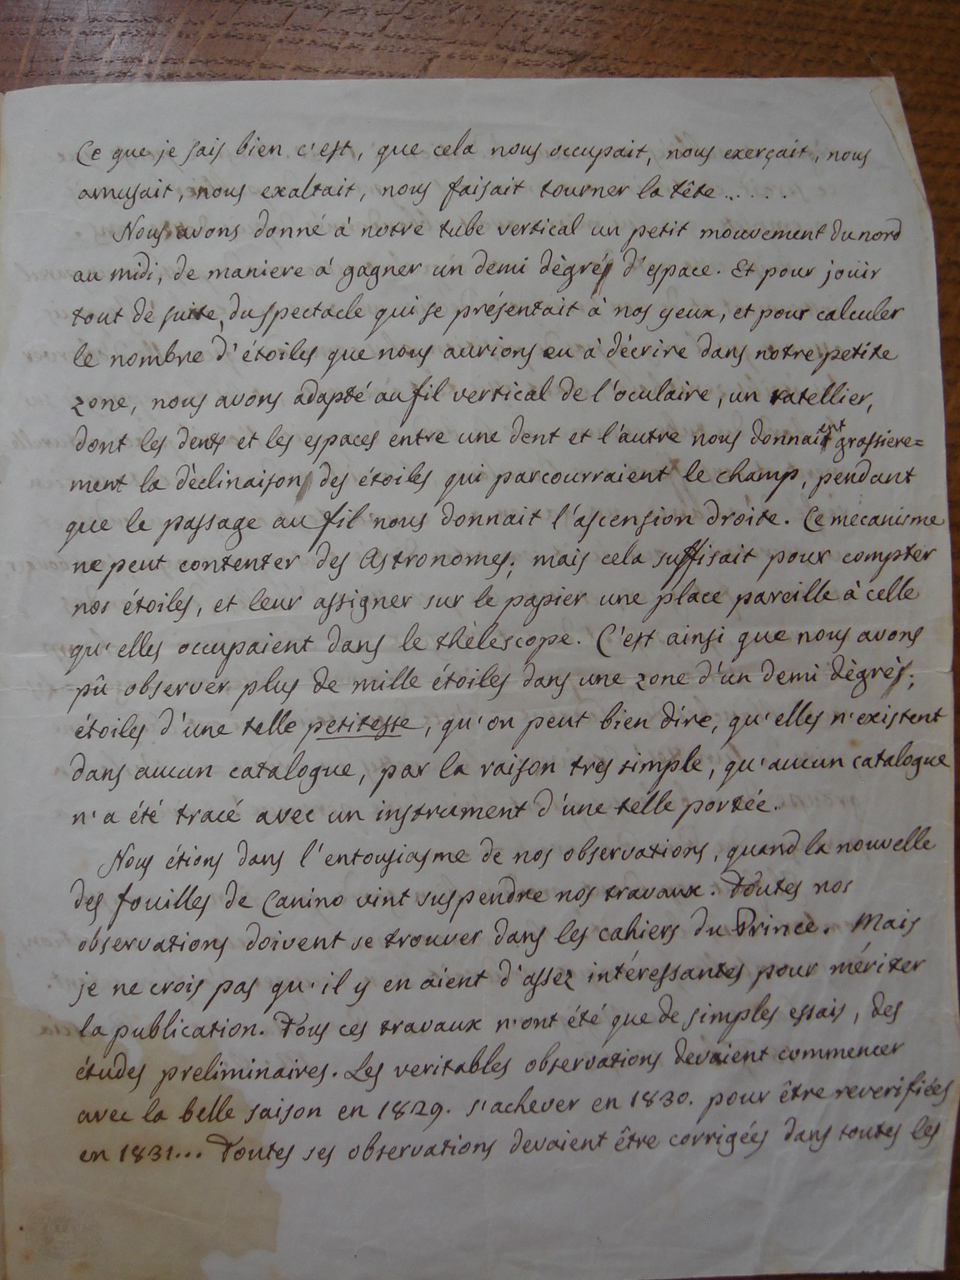 Ce que je sais bien c'est, que cela nous occupait, nous exerçait, nous
amusait, nous exaltait, nous faisait tourner la tête.....
Nous avons donné à notre tube vertical un petit mouvement du nord
au midi, de maniere à gagner un demi dègré d'espace. Et pour joüir
tout de suite, du spectacle qui se présentait à nos yeux, et pour calculer
le nombre d'étoiles que nous aurions eu à dècrire dans notre petite
zone, nous avons adapté au fil vertical de l'oculaire, un ratellier,
dont les dents et les espaces entre une dent et l'autre nous donnaient grossiere=
ment la dèclinaison des étoiles qui parcourraient le champ, pendant
que le passage au fil nous donnait l'ascension droite. Ce mècanisme
ne peut contenter des Astronomes; mais cela suffisait pour compter
nos étoiles, et leur assigner sur le papier une place pareille à celle
qu'elles occupaient dans le thèlescope. C'est ainsi que nous avons
pû observer plus de mille étoiles dans une zone d'un demi dègrès;
étoiles d'une telle petitesse, qu'on peut bien dire, qu'elles n'existent
dans aucun catalogue, par la raison tres simple, qu'aucun catalogue
n'a été tracé avec un instrument d'une telle portée.
Nous étions dans l'entousiasme de nos observations, quand la nouvelle
des fouilles de Canino vint suspendre nos travaux. Toutes nos
observations doivent se trouver dans les cahiers du Prince. Mais
je ne crois pas qu'il y en aient d'assez intéressantes pour mériter
la publication. Tous ces travaux n'ont été que de simples essais, des
études preliminaires. Les veritables observations devaient commencer
avec la belle saison en 1829. s'achever en 1830. pour être reverifiées
en 1831... Toutes ses observations devaient être corrigées dans toutes les